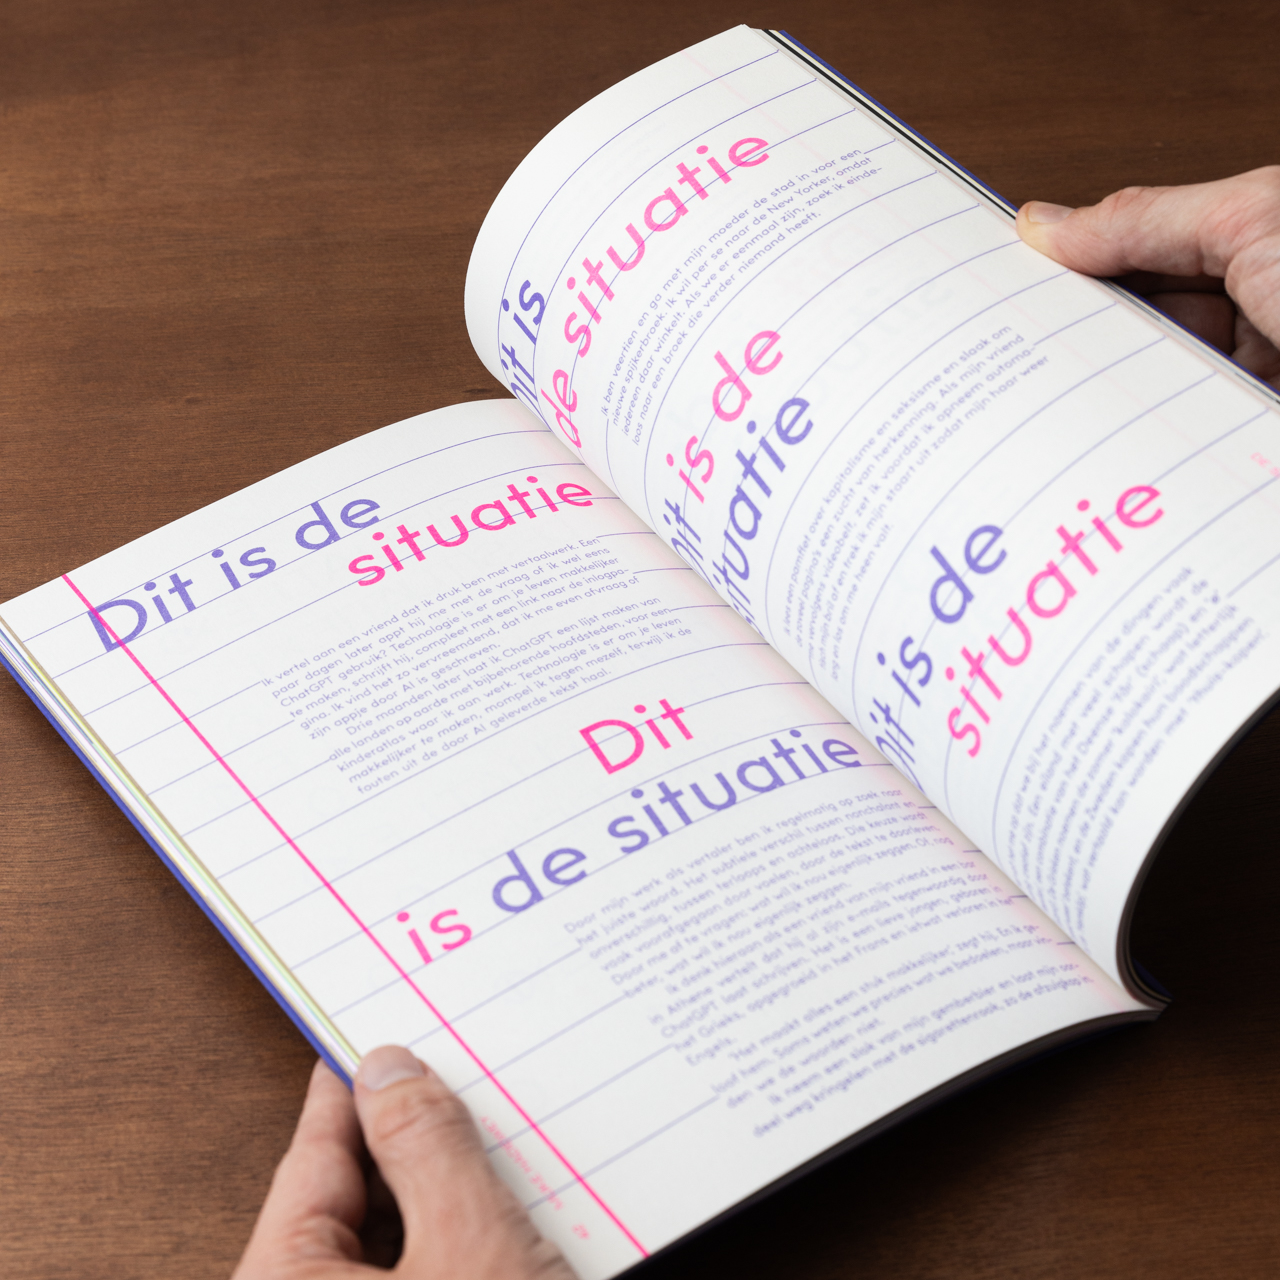 Dit is de
situatie
Ik vertel aan een vriend dat ik druk ben met vertaalwerk. Een
paar dagen later appt hij me met de vraag of ik wel eens
ChatGPT gebruik? Technologie is er om je leven makkelijker
te maken, schrijft hij, compleet met een link naar de inlogpa-
gina. Ik vind het zo vervreemdend, dat ik me even afvraag of
zijn appje door AI is geschreven.
Drie maanden later laat ik ChatGPT een lijst maken van
alle landen op aarde met bijbehorende hoofdsteden, voor een
kinderatlas waar ik aan werk. Technologie is er om je leven
makkelijker te maken, mompel ik tegen mezelf, terwijl ik de
fouten uit de door AI geleverde tekst haal.
Dit
is de situatie
Door mijn werk als vertaler ben ik regelmatig op zoek naar
het juiste woord. Het subtiele verschil tussen nonchalant en
onverschillig, tussen terloops en achteloos. Die keuze wordt
vaak voorafgegaan door voelen, door de tekst te doorleven.
Door me af te vragen: wat wil ik nou eigenlijk zeggen. Of, nog
beter, wat wil ik nou eigenlijk zeggen.
Ik denk hieraan als een vriend van mijn vriend in een bar
in Athene vertelt dat hij al zijn e-mails tegenwoordig door
ChatGPT laat schrijven. Het is een lieve jongen, geboren in
het Grieks, opgegroeid in het Frans en ietwat verloren in het
Engels.
'Het maakt alles een stuk makkelijker,' zegt hij. En ik ge-
loof hem. Soms weten we precies wat we bedoelen, maar vin-
den we de woorden niet.
Ik neem een slok van mijn gemberbier en laat mijn oor-
deel weg kringelen met de sigarettenrook, zo de afzuigkap in.
42
Dit is
de situatie
Ik ben veertien en ga met mijn moeder de stad in voor een
nieuwe spijkerbroek. Ik wil per se naar de New Yorker, omdat
iedereen daar winkelt. Als we er eenmaal zijn, zoek ik einde-
loos naar een broek die verder niemand heeft.
Dit is de
situatie
Ik lees een pamflet over kapitalisme en seksisme en slaak om
de zoveel pagina's een zucht van herkenning. Als mijn vriend
me vervolgens videobelt, zet ik voordat ik opneem automa-
tisch mijn bril af en trek ik mijn staart uit zodat mijn haar weer
lang en los om me heen valt.
Dit is de
situatie